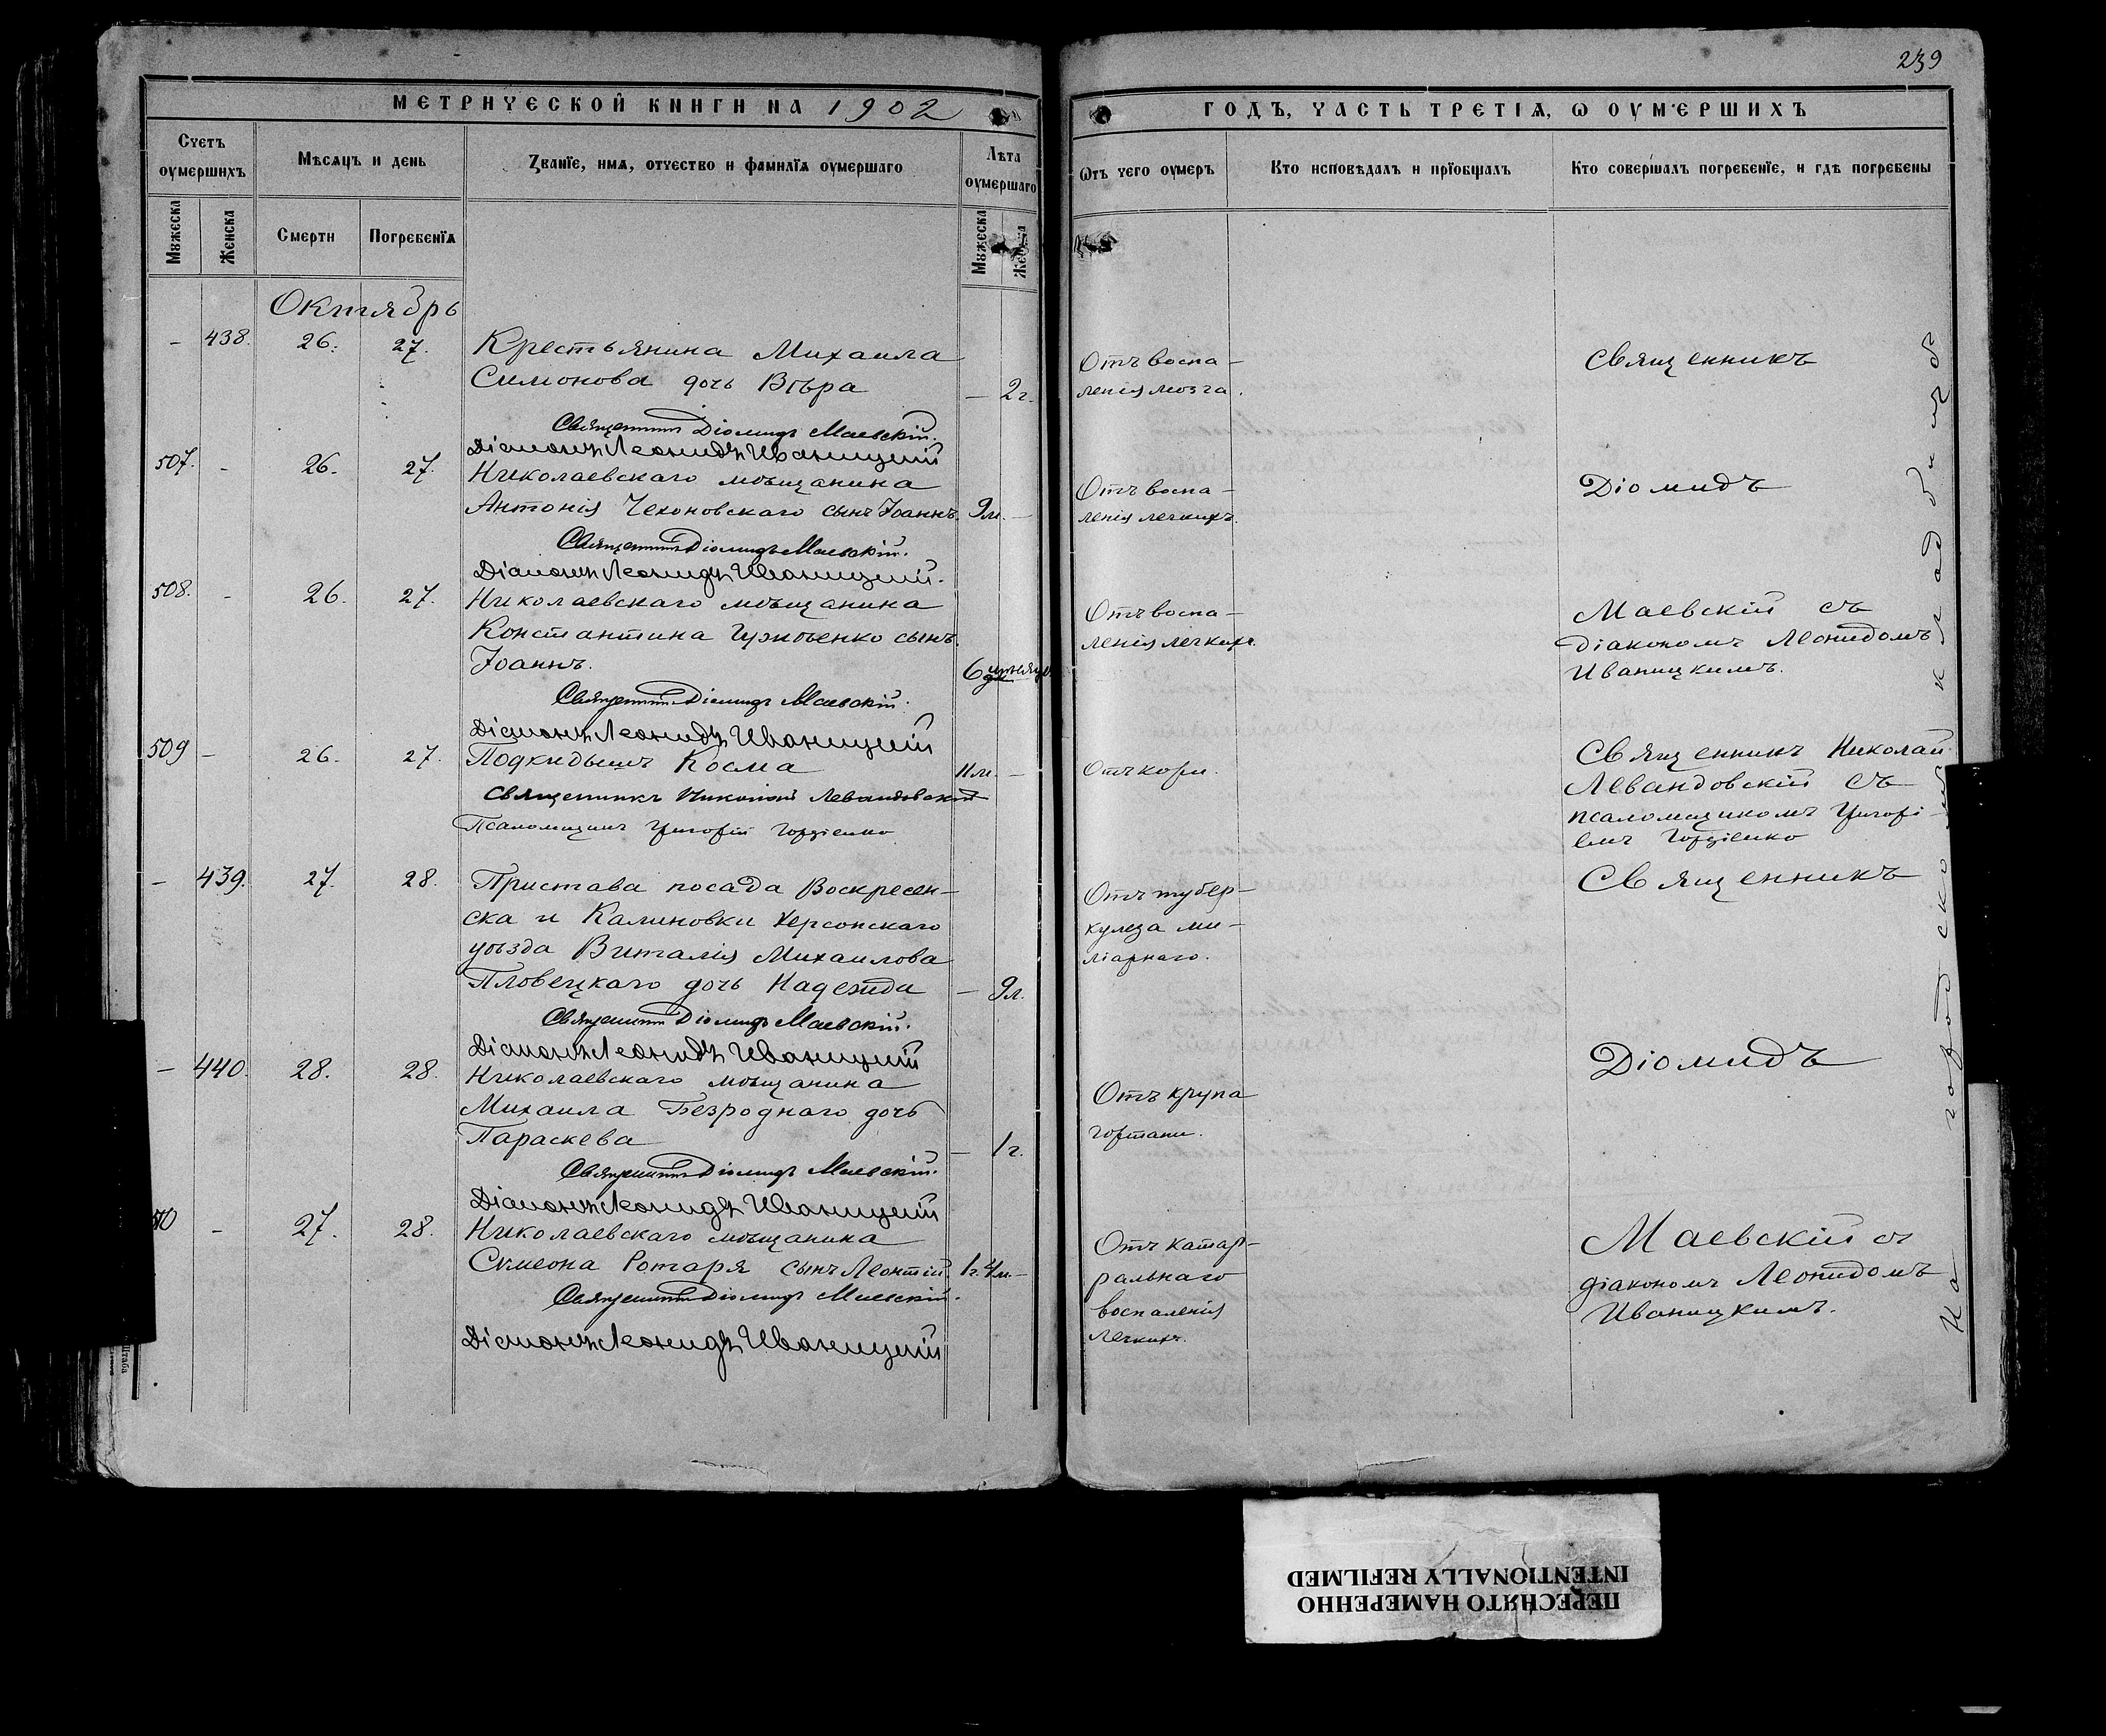 239
МЕТРИЧЕСКОЙ КНИГИ НА 1902
ГОДЪ, ЧАСТЬ ТРЕТІЯ, Ѡ ОУМЕРШИХЪ
Счетъ оумершихъ
Мѣсяцъ и день
Званїе, имя, отчество и фамилїя оумершаго
Лѣта оумершаго
Ѿтъ чего оумеръ
Кто исповѣдалъ и прїобщалъ
Кто совершалъ погребенїе, и гдѣ погребены
Мужеска
Женска
Смерти
Погребенїя
Мужеска
Октябрь
- 438. 26. 27. Крестьянина Михаила
Симонова дочь Вѣра - 2г.
Отъ воспа-
ленія мозга.
Священникъ
Священникъ Діомидъ Маевскій.
Діаконъ Леонидъ Иваницкій
507. - 26. 27. Николаевскаго мѣщанина
Антонія Чехоновскаго сынъ Іоаннъ. 9м. -
Отъ воспа-
ленія легкихъ.
Діомидъ
Священникъ Діомидъ Маевскій.
Діаконъ Леонидъ Иваницкій.
508. - 26. 27. Николаевскаго мѣщанина
Константина сынъ
Іоаннъ. 6
Отъ воспа-
ленія легкихъ.
Маевскій съ
діакономъ Леонидомъ
Иваницкимъ.
Священникъ Діомидъ Маевскій.
Діаконъ Леонидъ Иваницкій
509 - 26. 27. Подкидышъ Косма 11м. -
Отъ кори.
Священникъ Николай Левандовскій
Псаломщикъ Григорій Гордіенко
Священникъ Николай
Левандовскій съ
псаломщикомъ Григорі-
емъ Гордіенко
- 439. 27. 28. Пристава посада Воскресен-
ска и Калиновки Херсонскаго
уѣзда Виталія Михаилова
Пловецкаго дочь Надежда - 9л.
Отъ тубер-
кулеза ми-
ліарнаго.
Священникъ
Священникъ Діомидъ Маевскій.
Діаконъ Леонидъ Иваницкій
- 440. 28. 28. Николаевскаго мѣщанина
Михаила Безроднаго дочь
Параскева - 1г.
Отъ крупа
гортани.
Діомидъ
Священникъ Діомидъ Маевскій.
Діаконъ Леонидъ Иваницкій
510 - 27. 28. Николаевскаго мѣщанина
Симеона Ротаря сынъ Леонтій. 1г. 4м. -
Отъ катар-
ральнаго
воспаленія
легкихъ.
Маевскій съ
діакономъ Леонидомъ
Иваницкимъ.
Священникъ Діомидъ Маевскій.
Діаконъ Леонидъ Иваницкій
На городскомъ кладбищѣ
ПЕРЕСНЯТО НАМЕРЕННО
INTENTIONALLY REFILMED